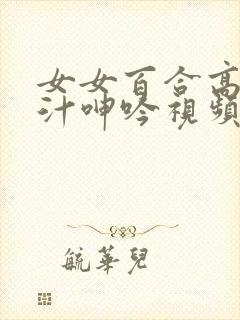 女女百合高
汁呻吟視頻
毓華兒